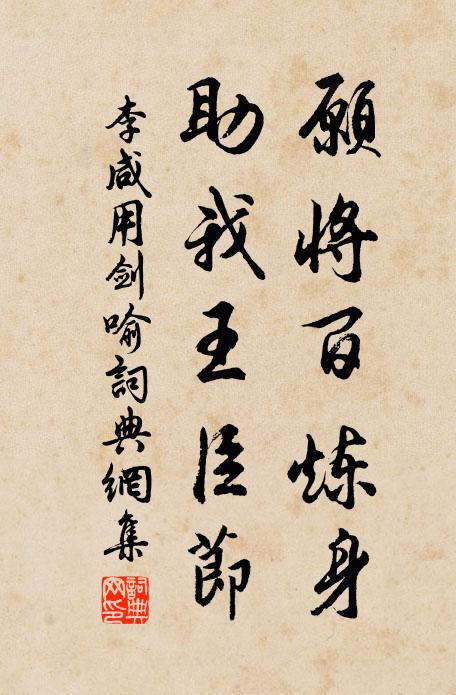 願將百炼身
助我王臣節
李咸用剑喻詞典網集
詞典
网印